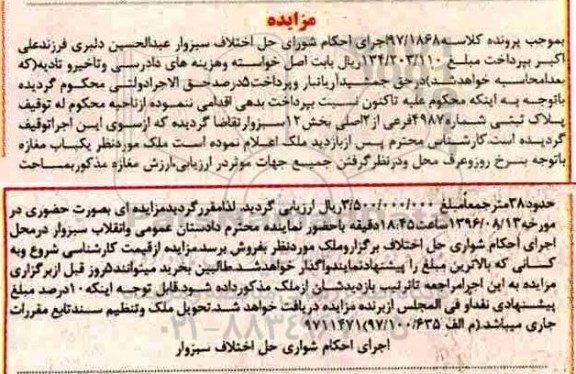 مزایده
بموجب پرونده کلاسه۹۷/۱۸۶۸اجرای احکام شورای حل اختلاف سبزوار عبدالحسین دلبری فرزندعلی
اکبر بپرداخت مبلغ ۱۳۴/۳۰۳/۱۱۰ریال بابت اصل خواسته وهزینه های دادرسی وتاخیرو تادیه(که
بعدامحاسبه خواهدشد)درحق جمشیدآریانیار وپرداخت۵درصدحق الاجرادولتی محکوم گردیده
باتوجه به اینکه محکوم علیه تاکنون نسبت بپرداخت بدهی اقدامی ننموده ازناحیه محکوم له توقیف
پلاک ثبتی شماره۴۹۸۷فرعی از۲اصلی بخش۱۲سبزوارتقاضا گردیده که ازسوی این اجراتوقیف
گردیده است.کارشناس محترم پس ازبازدید ملک اعلام نموده است ملک موردنظر یکباب مغازه
باتوجه بنرخ روزوعرف محل ودرنظرگرفتن جمیع جهات موثردر ارزیابی،ارزش مغازه مذکوربمساحت
حدود۳۸مترجمعامبلغ ۳/۵۰۰/۰۰۰/۰۰۰ریال ارزیابی گردید. لذامقررگردیدمزایده ای بصورت حضوری در
مورخه۱۳۹۶/۰۸/۱۳ساعت۱۸:۴۵دقیقه باحضور نماینده محترم دادستان عمومی وانقلاب سبزوار درمحل
اجرای احکام شواری حل اختلاف برگزاروملک موردنظر بفروش برسد.مزایده ازقیمت کارشناسی شروع وبه
کسانی که بالاترین مبلغ را پیشنهادنمایندواگذار خواهدشد.طالبین بخرید میتوانند۵روز قبل ازبرگزاری
مزایده به این اجرامراجعه تاترتیب بازدیدشان ازملک مذکورداده شود.قابل توجه اینکه۱۰درصد مبلغ
پیشنهادی نقداو فی المجلس ازبرنده مزایده دریافت خواهد شد.تحویل ملک وتنظیم سندتابع مقررات
جاری میباشد.(م الف ۹۷/۱۰۰/۶۳۵)۹۷۱۱۴۷۱
اجرای احکام شواری حل اختلاف سبزوار